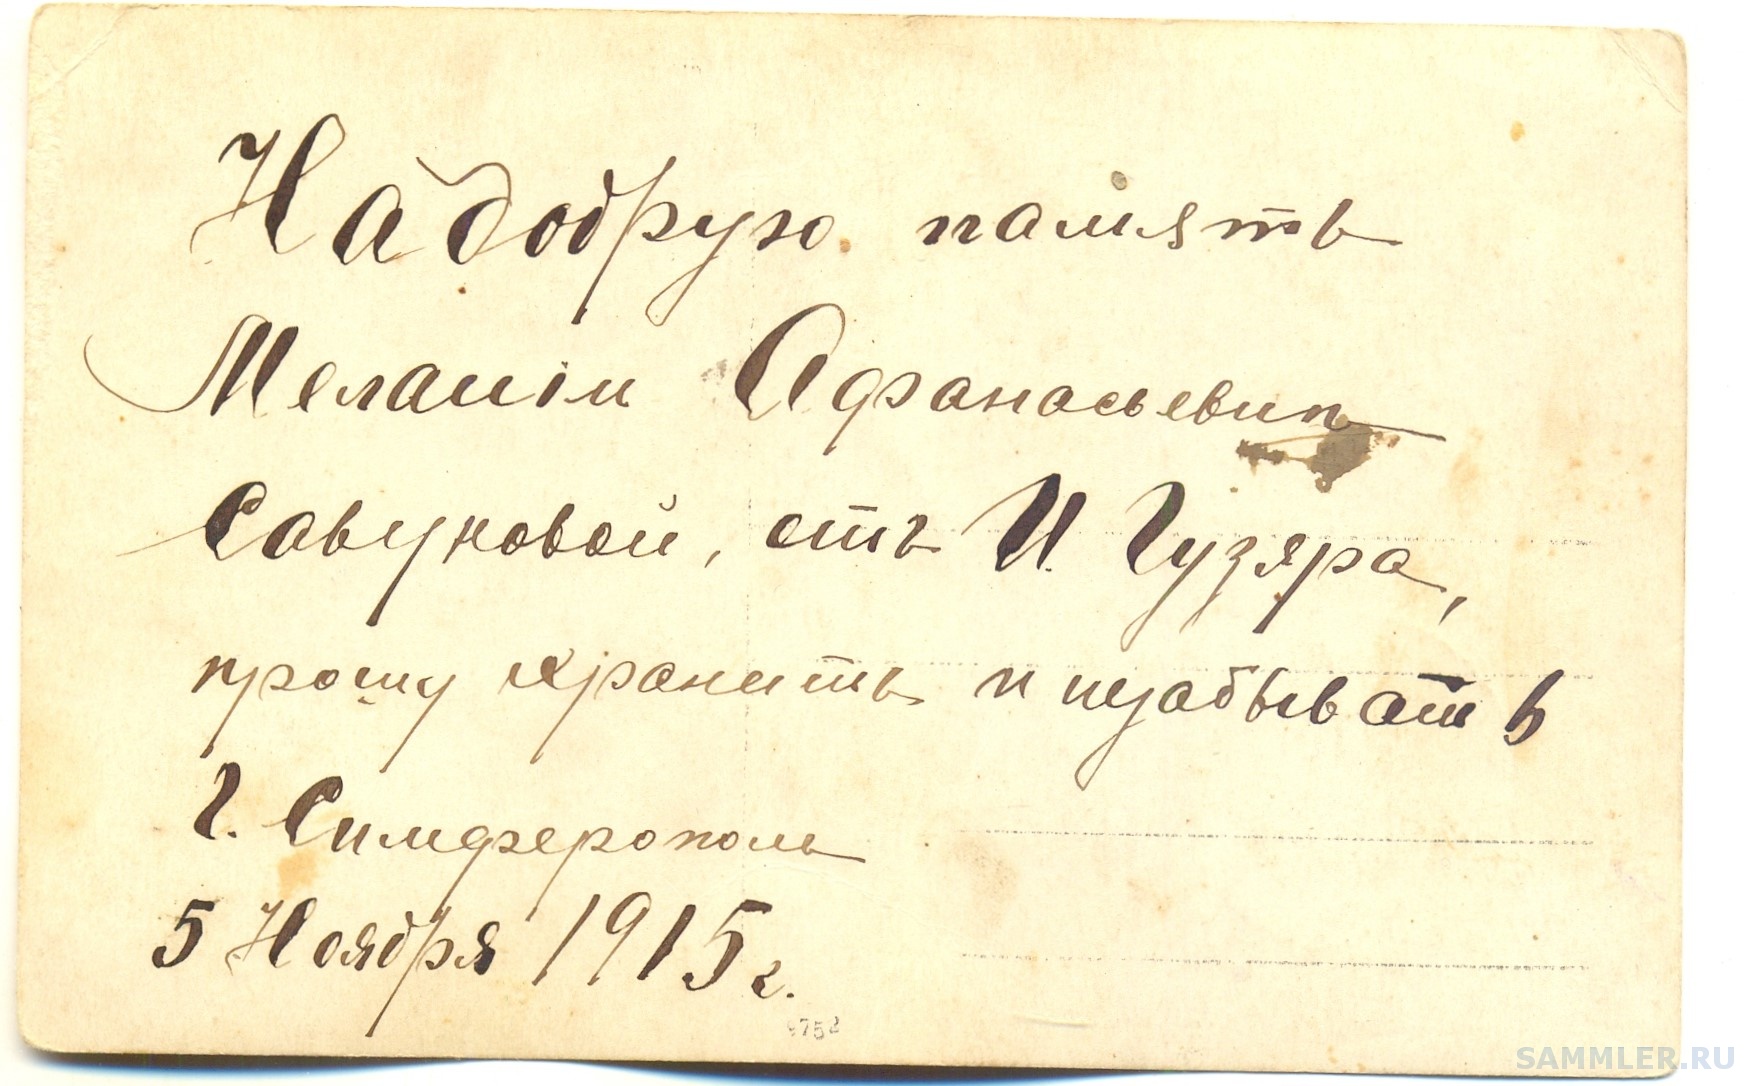 На добрую память
Меланіи Афанасьевип
Савуковой, отъ И. Гузяра,
прошу хранить и незабывать
г. Симферополь
5 Ноября 1915 г.
9752
SAMMLER.RU